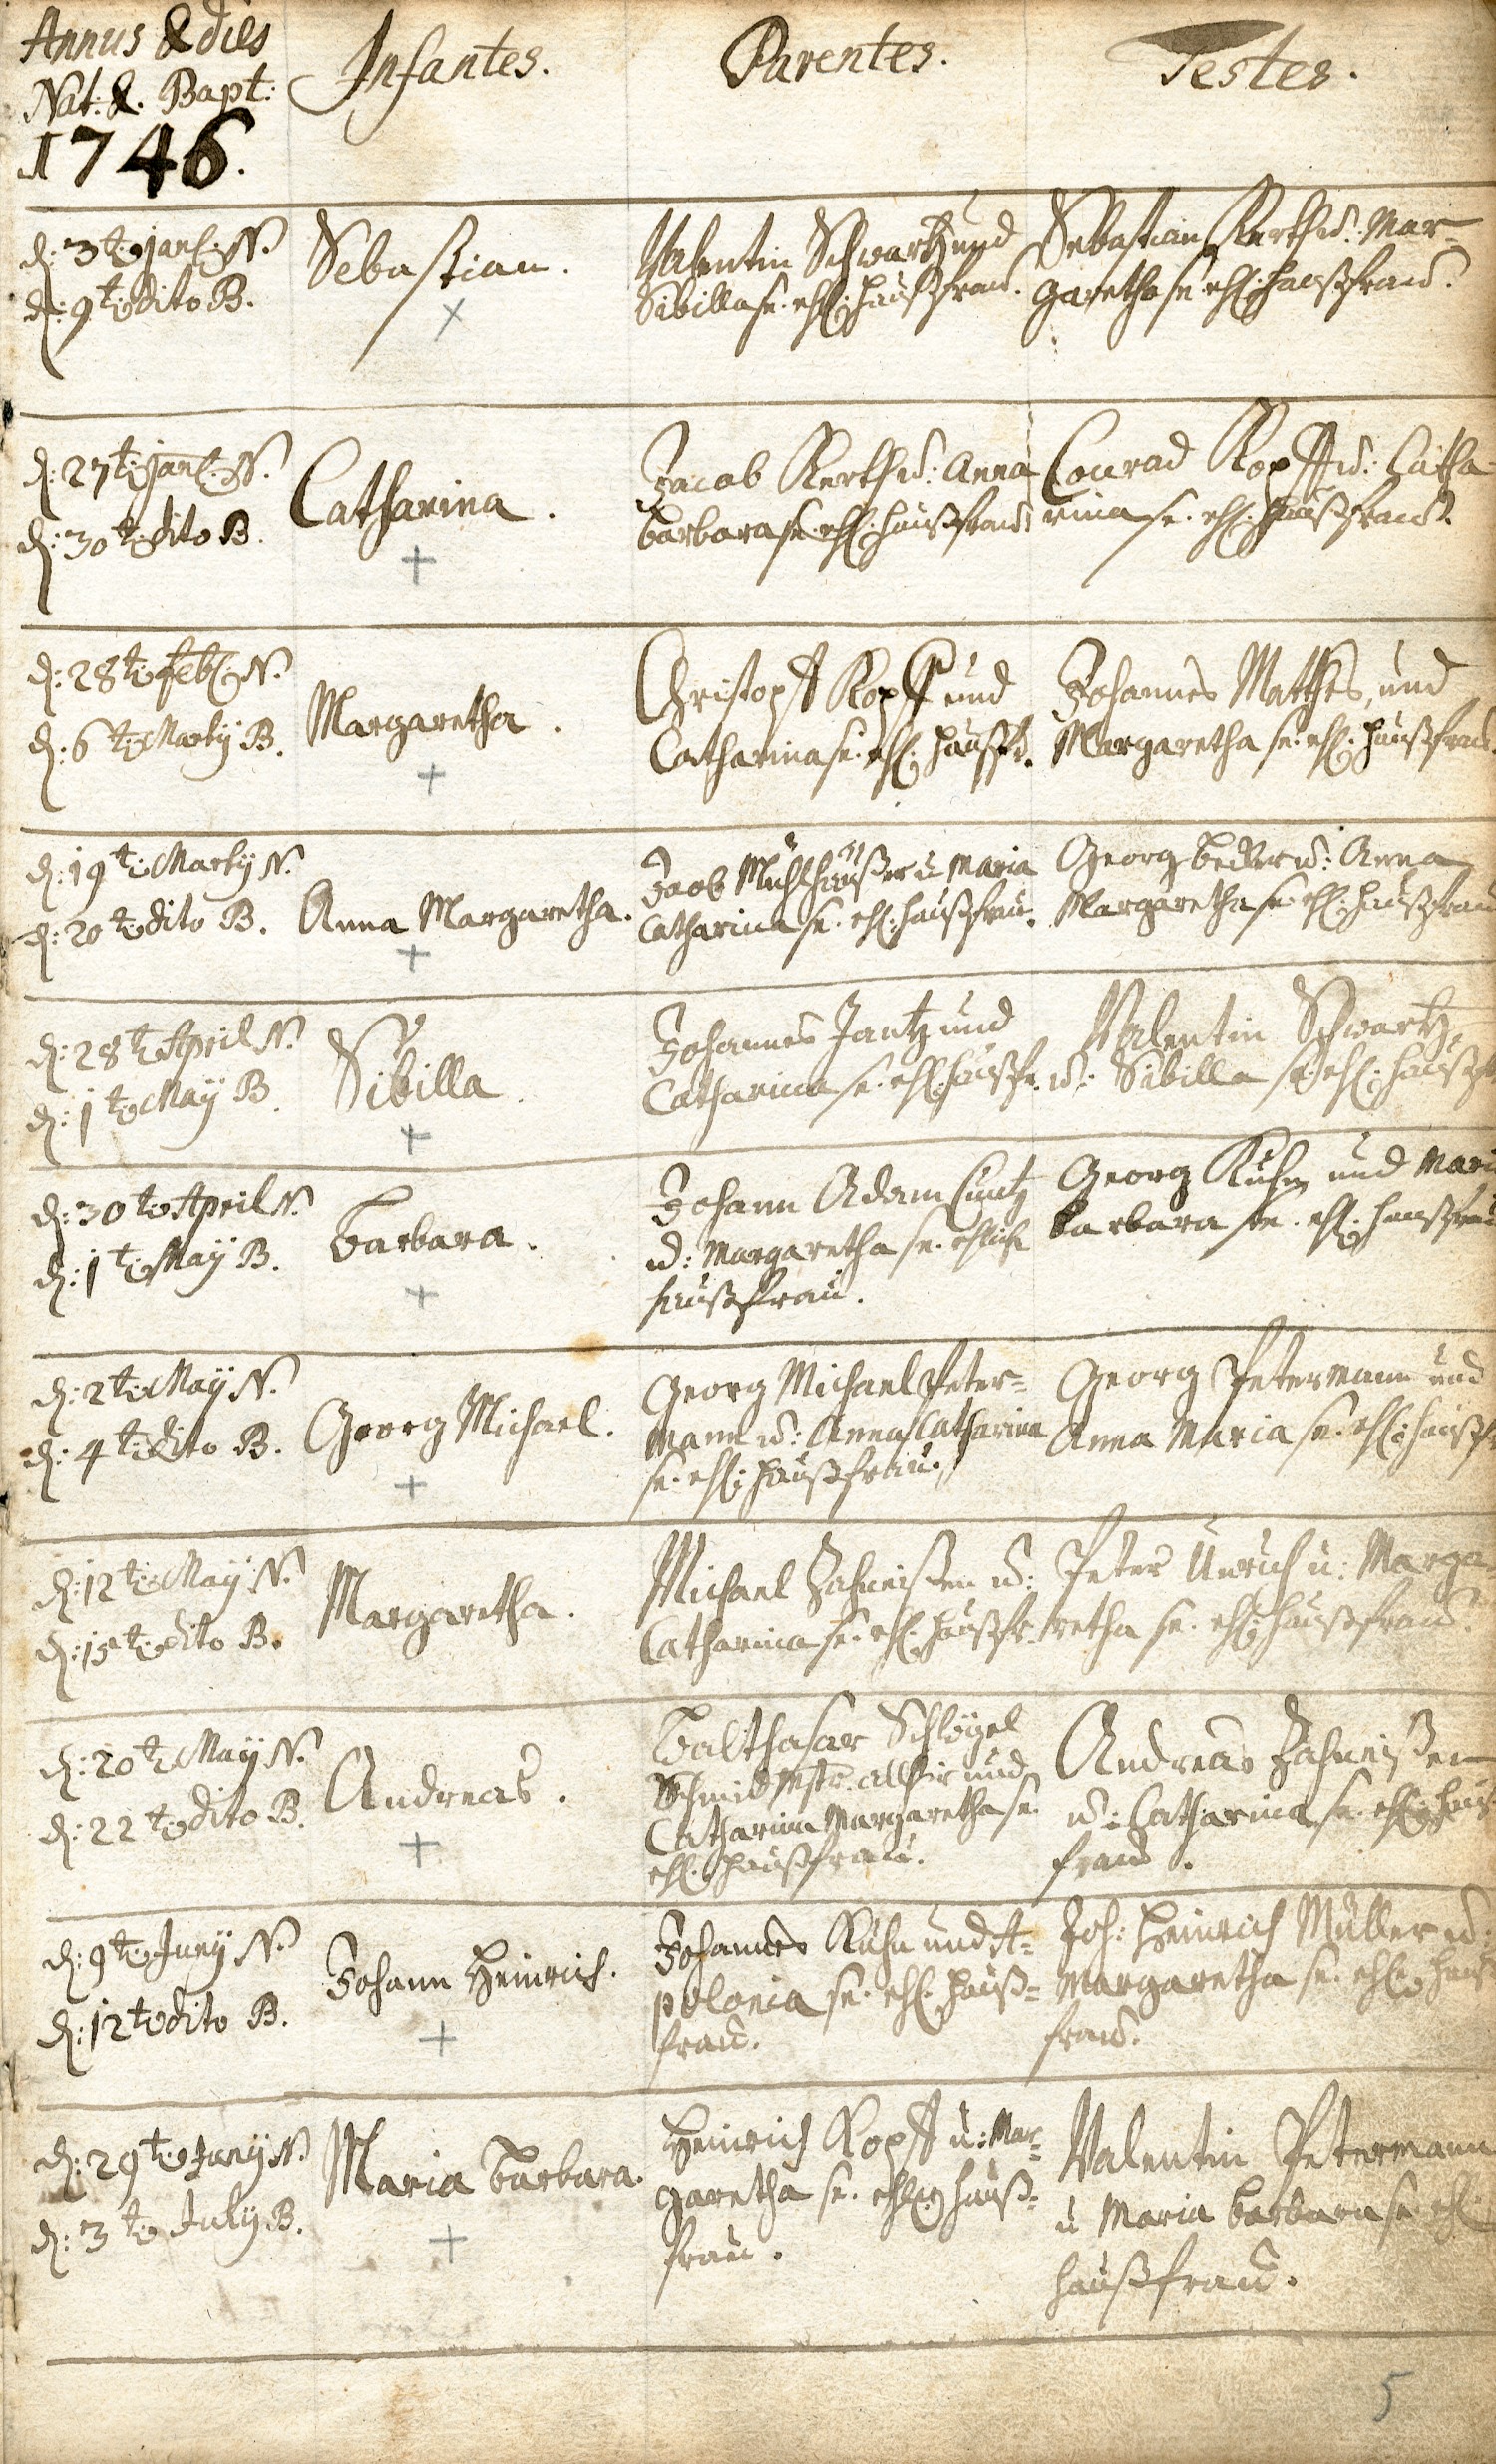 Annus & dies
Nat: &. Bapt:
1746.
Infantes.
Parentes.
Testes.
d: 3t: Jan: N.
d: 9t: dito B.
Sebastian.
Valentin Schwartz und
Sibilla se. ehl: haußfrau.
Sebastian Kerth u: Mar-
garetha se ehl: haußfrau.
d: 27t: Jan: N.
d: 30t: dito B.
Catharina.
Jacob Kerth u: Anna
barbara se ehl: haußfrau
Conrad Kopff u: Catha
rina se. ehl: haußfrau.
d: 28t: feb: N.
d: 6t: Martij B.
Margaretha.
Christoph Kopff und
Catharina se. ehl: haußfr.
Johannes Matthes, und
Margaretha se. ehl: haußfrau.
d: 19t: Martij N.
d: 20t: dito B.
Anna Margaretha.
Jacob Mühlhäußer u Maria
Catharina se. ehl: haußfrau.
Georg u: Anna
Margaretha se ehl: haußfrau
d: 28t April N.
d: 1t: May B.
Sibilla.
Johannes Jantz und
Catharina se. ehl: haußfr.
Valentin Schwartz,
u: Sibilla se ehl: haußfr
d: 30t: April N.
d: 1t: May B.
Barbara.
Johann Adam Cuntz
u: Margaretha se. ehlich
haußfrau.
Georg Kuhn und Mari
barbara se. ehl: haußfrau
d: 2t: May N.
d: 4t: dito B.
Georg Michael.
Georg Michael Peter=
mann u: Anna Catharina
se. ehl: haußfrau.
Georg Petermann und
Anna Maria se. ehl: haußfr
d: 12t: May N.
d: 15t: dito B.
Margaretha.
Michael Zahneißen u:
Catharina se. ehl: haußfr.
Peter Unrich u: Marga-
retha se. ehl: haußfrau.
d: 20t: May N.
d: 22t: dito B.
Andreas.
Balthasar Schlögel
Schmid Mstr. allhir und
Catharina Margaretha se.
ehl. haußfrau.
Andreas Zahneißen
u: Catharina se. ehl: hauß
frau.
d: 9t: Juny N.
d: 12t: dito B.
Johann Heinrich.
Johannes Kuhn und A=
polonia se. ehl. hauß=
frau.
Joh: Heinrich Müller u:
Margaretha se. ehl: hauß
frau.
d: 29t: Juny N.
d: 3t: July B.
Maria Barbara.
Heinrich Kopff u: Mar=
garetha se. ehlig hauß=
frau.
Valentin Petermann
u Maria barbara se ehl:
haußfrau.
5